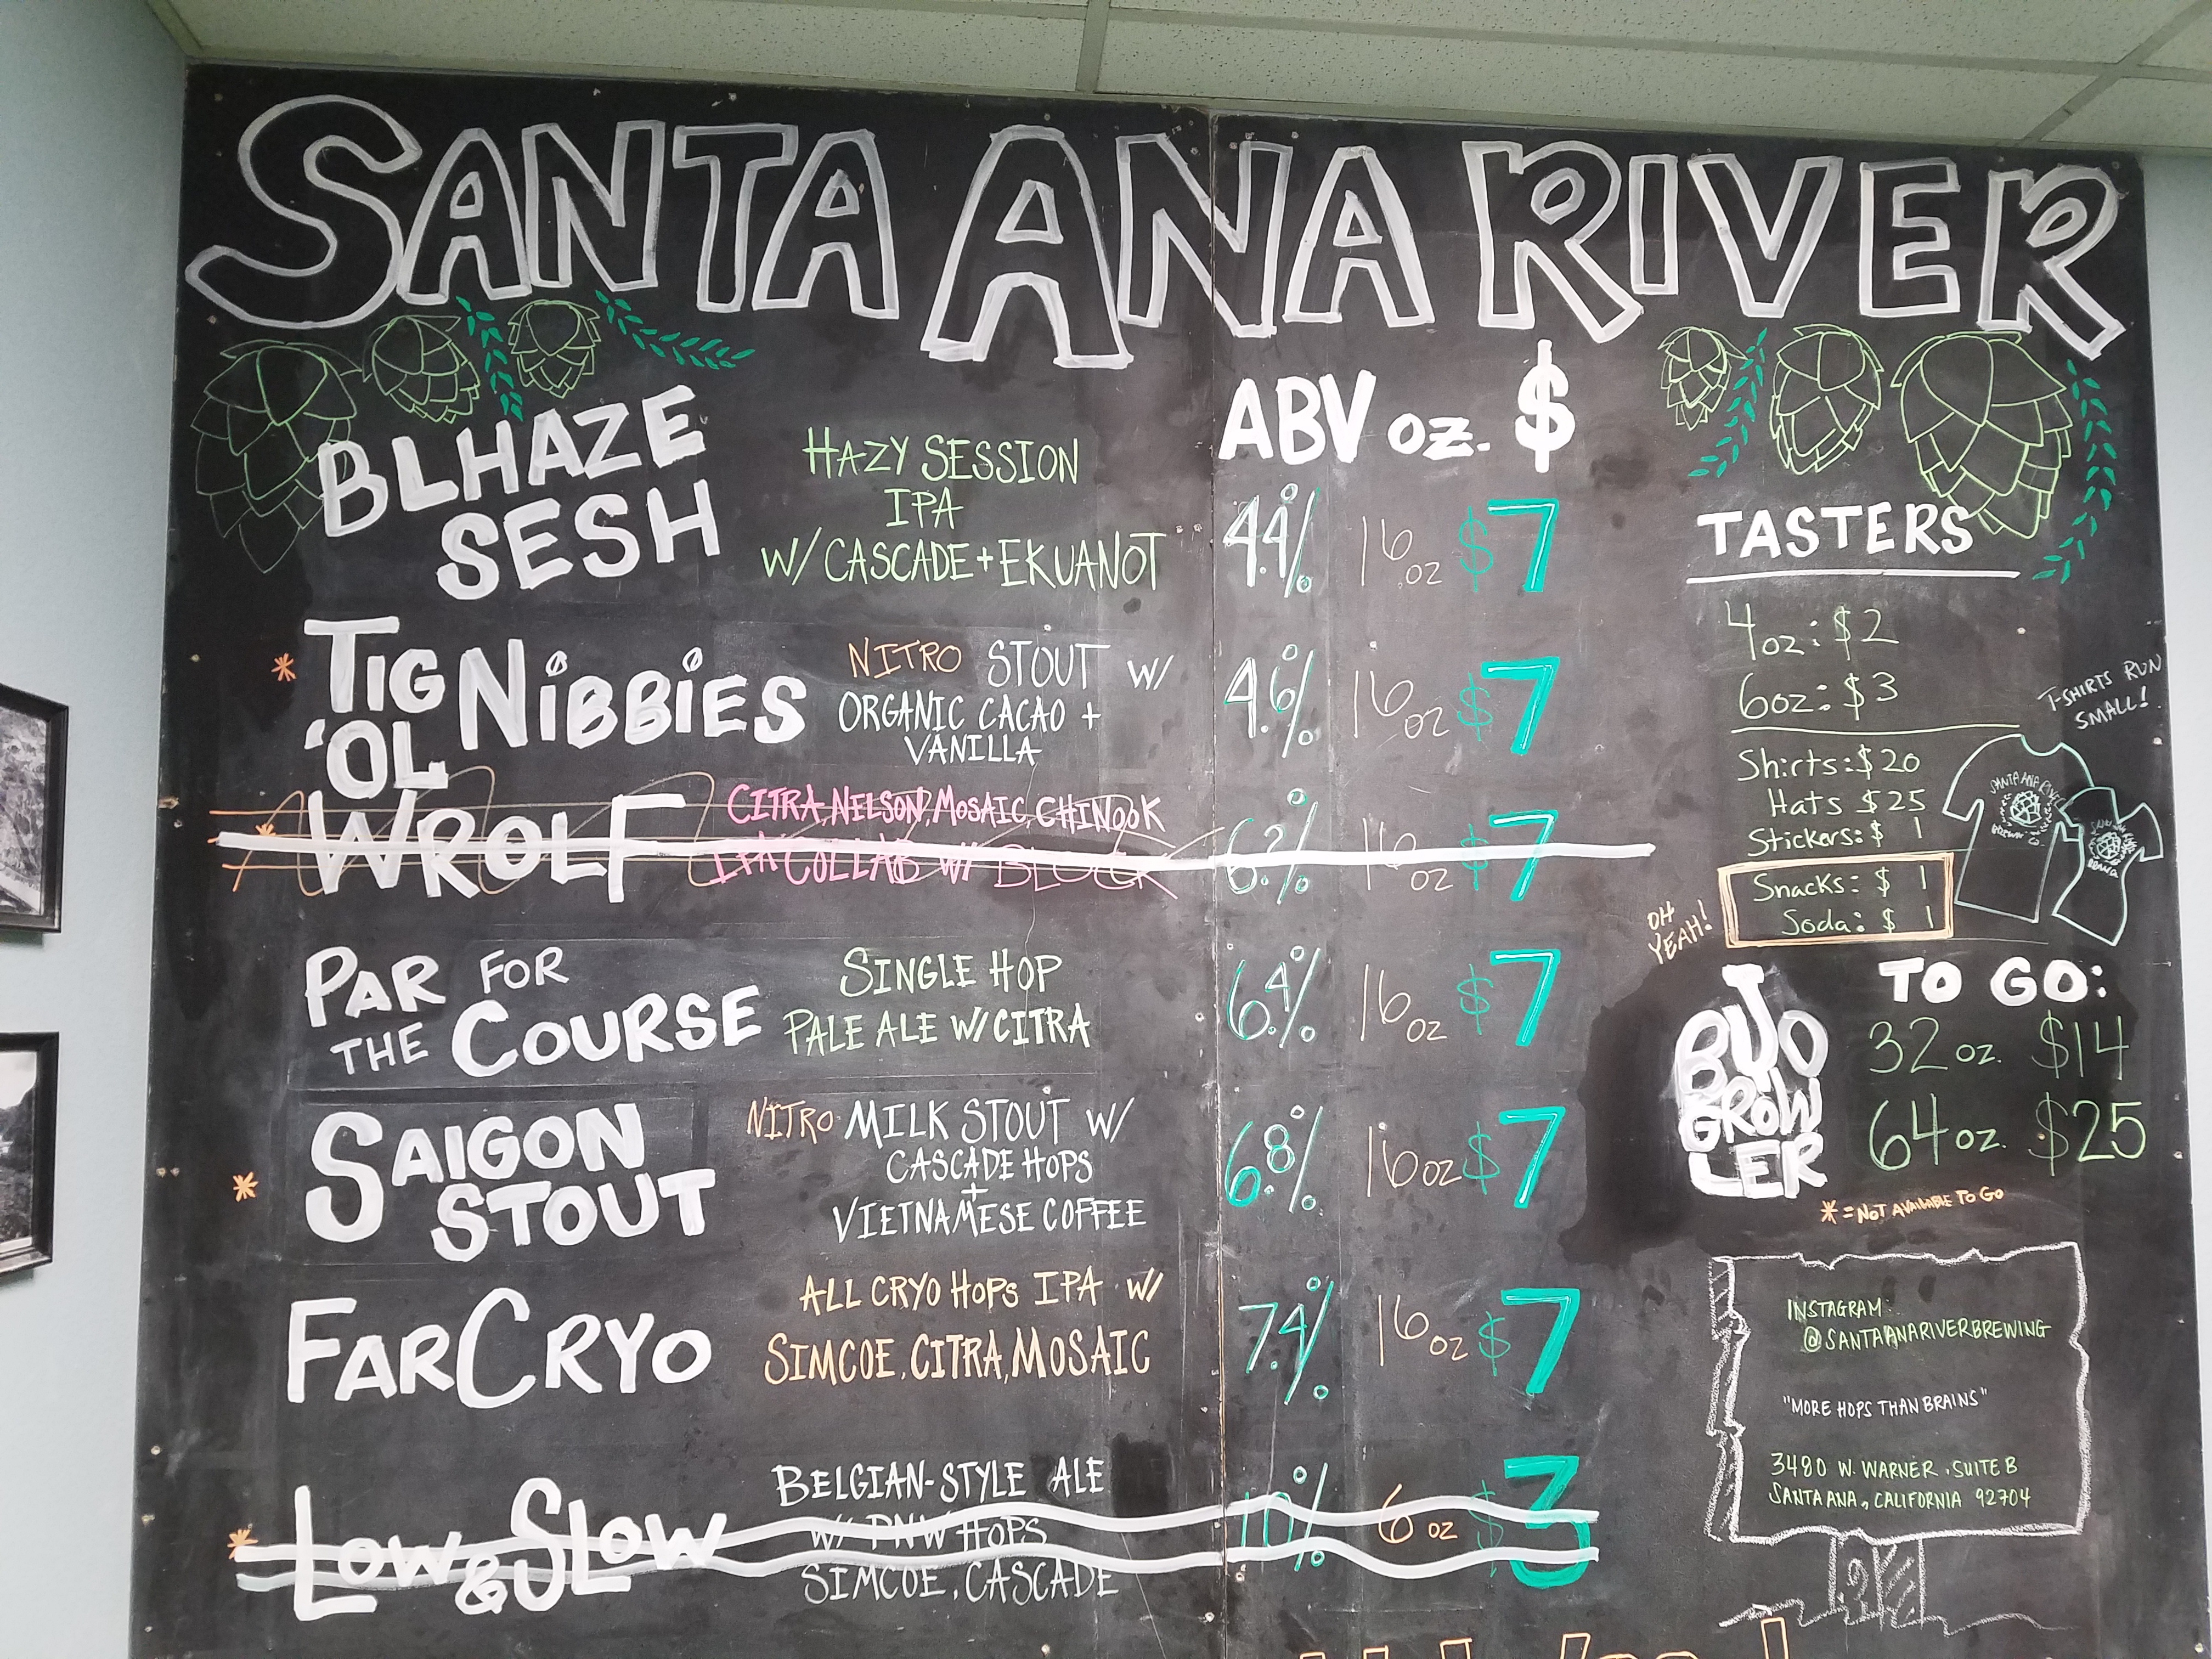 SANTA ANA RIVER
ABV oz. $
BLHAZE
SESH
HAZY SESSION
IPA
W/ CASCADE + EKUANOT
4.4% 16 oz $7
* TIG
'OL
NIBBIES
NITRO STOUT W/
ORGANIC CACAO +
VANILLA
4.6% 16 oz $7
* WROLF
CITRA, NELSON, MOSAIC, CHINOOK
IPA COLLAB W/ BLOCK
16 oz $7
PAR FOR
THE COURSE
SINGLE HOP
PALE ALE W/ CITRA
6.4% 16 oz $7
* SAIGON
STOUT
NITRO MILK STOUT W/
CASCADE HOPS
+
VIETNAMESE COFFEE
6.8% 16 oz $7
FAR CRYO
ALL CRYO HOPS IPA W/
SIMCOE, CITRA, MOSAIC
7.4% 16 oz $7
* LOW & SLOW
BELGIAN-STYLE ALE
W/ PNW HOPS
SIMCOE, CASCADE
10% 6 oz $3
TASTERS
4oz: $2
6oz: $3
Shirts: $20
Hats $25
Stickers: $ 1
Snacks: $ 1
Soda: $ 1
OH
YEAH!
T-SHIRTS RUN
SMALL!
SANTA ANA RIVER
TO GO:
32 oz. $14
64 oz. $25
BUJO
GROW
LER
* = NOT AVAILABLE TO GO
INSTAGRAM:
@SANTAANARIVERBREWING
"MORE HOPS THAN BRAINS"
3480 W. WARNER, SUITE B
SANTA ANA, CALIFORNIA 92704